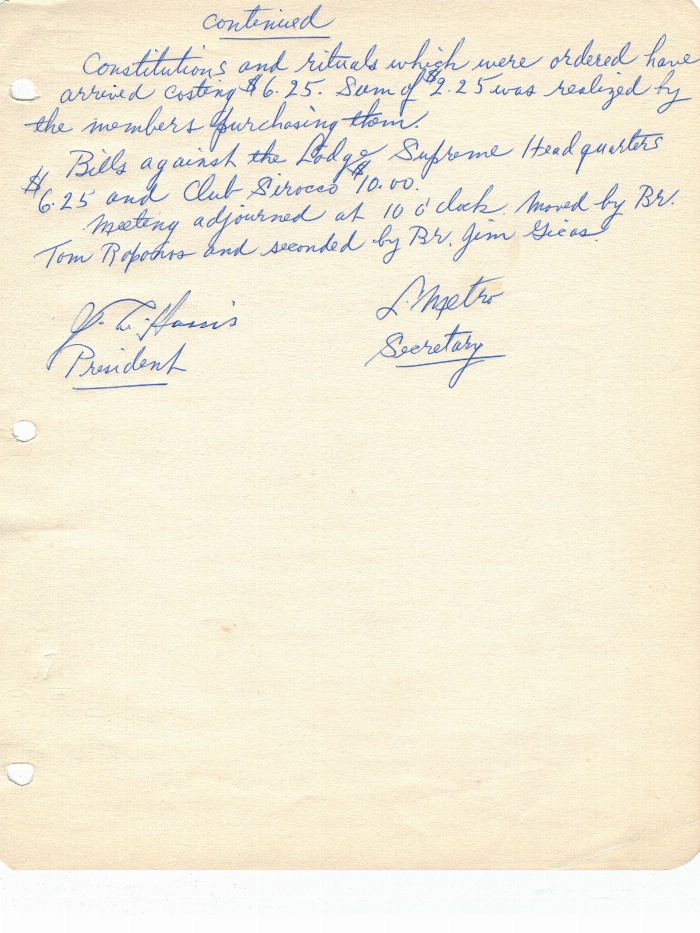 continued
Constitutions and rituals which were ordered have
arrived costing $6.25. Sum of $2.25 was realized by
the members purchasing them.
Bills against the Lodge, Supreme Headquarters
$6.25 and Club Sirocco $10.00.
Meeting adjourned at 10 o'clock. Moved by Br.
Tom Roponos and seconded by Br. Jim Gicas.
Harris
President
S. Metro
Secretary